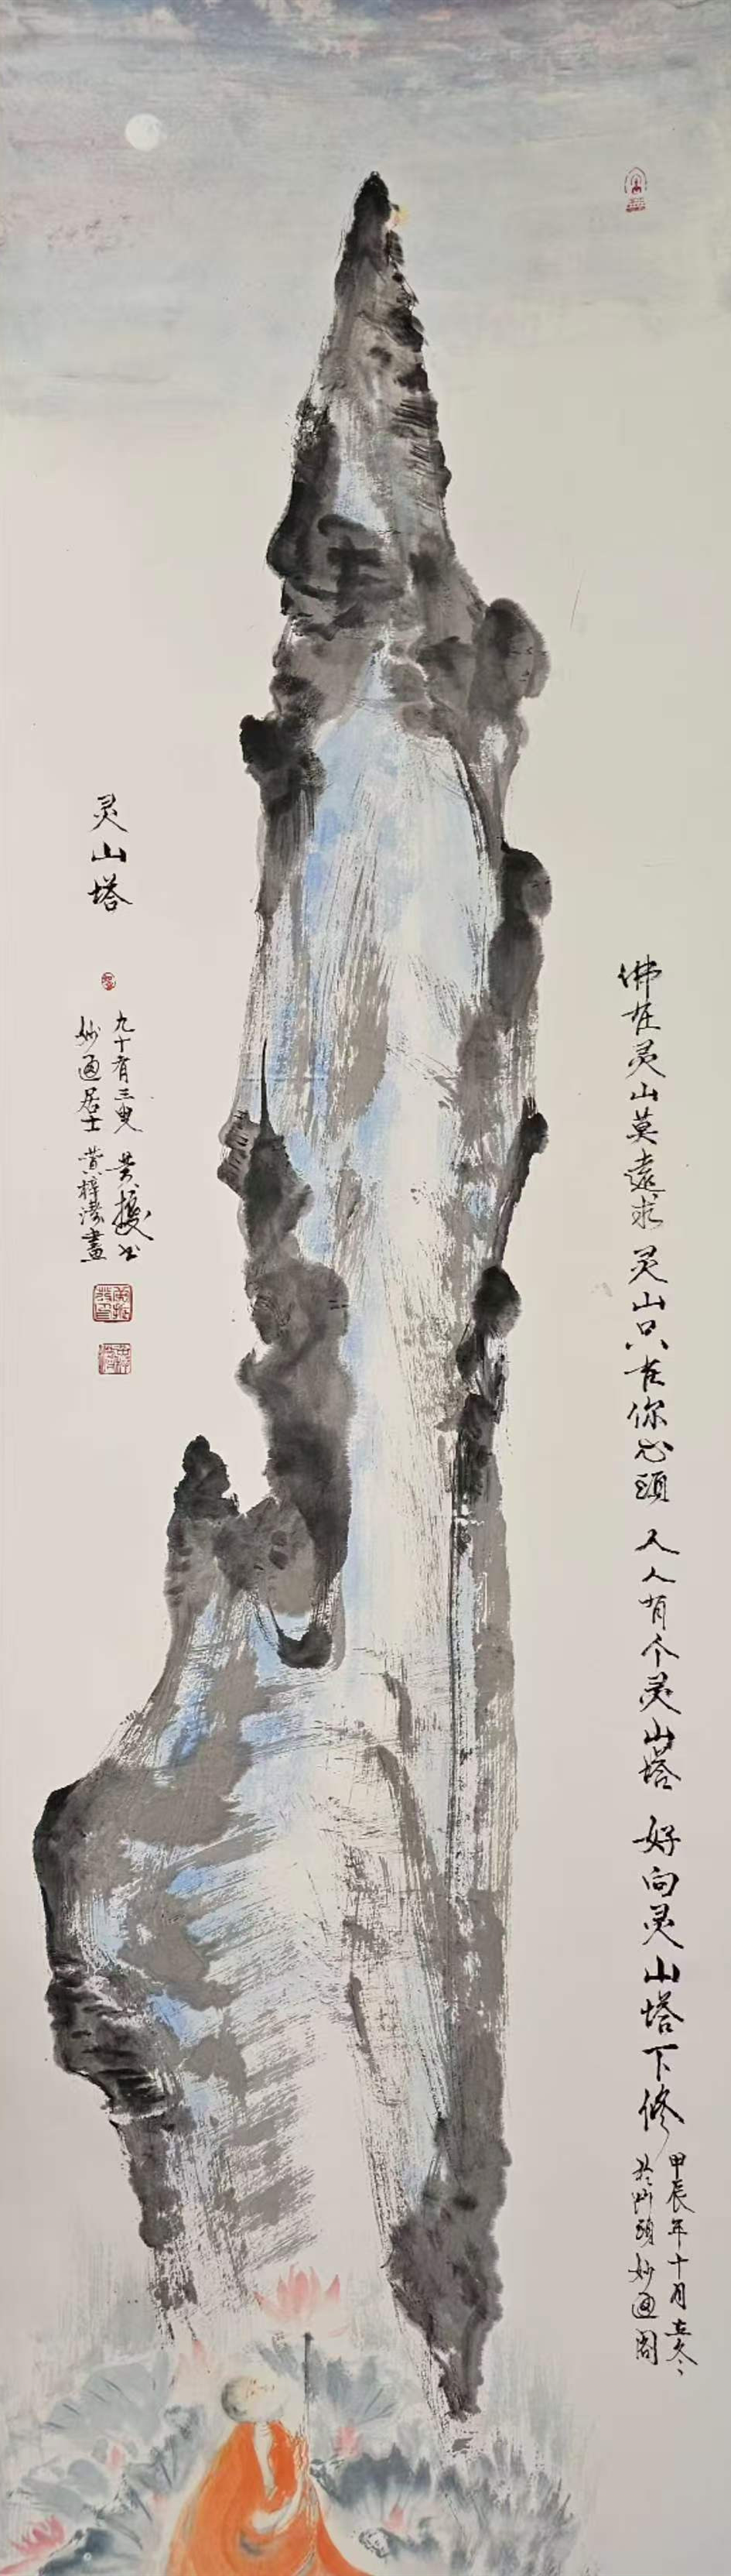 佛在灵山莫遠求 灵山只在你心頭 人人有个灵山塔 好向灵山塔下修
甲辰年十月立冬
於汕頭妙通閣
灵山塔
九十有三叟 黄援书
妙通居士 黄梓濤畫